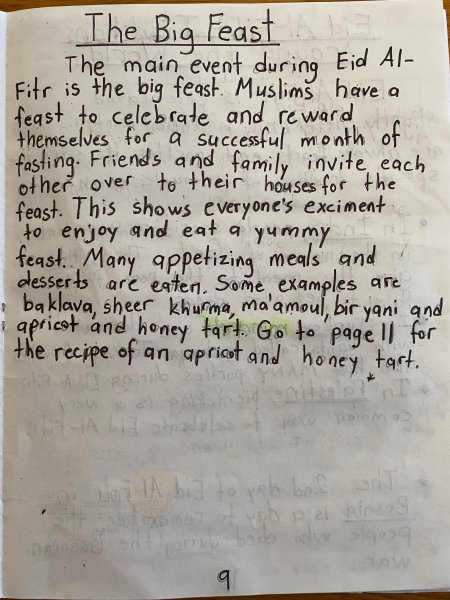 The Big Feast
The main event during Eid Al-
Fitr is the big feast. Muslims have a
feast to celebrate and reward
themselves for a successful month of
fasting. Friends and family invite each
other over to their houses for the
feast. This shows everyone's exciment
to enjoy and eat a yummy
feast. Many appetizing meals and
desserts are eaten. Some examples are
baklava, sheer khurma, ma'amoul, biryani and
apricot and honey tart. Go to page 11 for
the recipe of an apricot and honey tart.
*
9